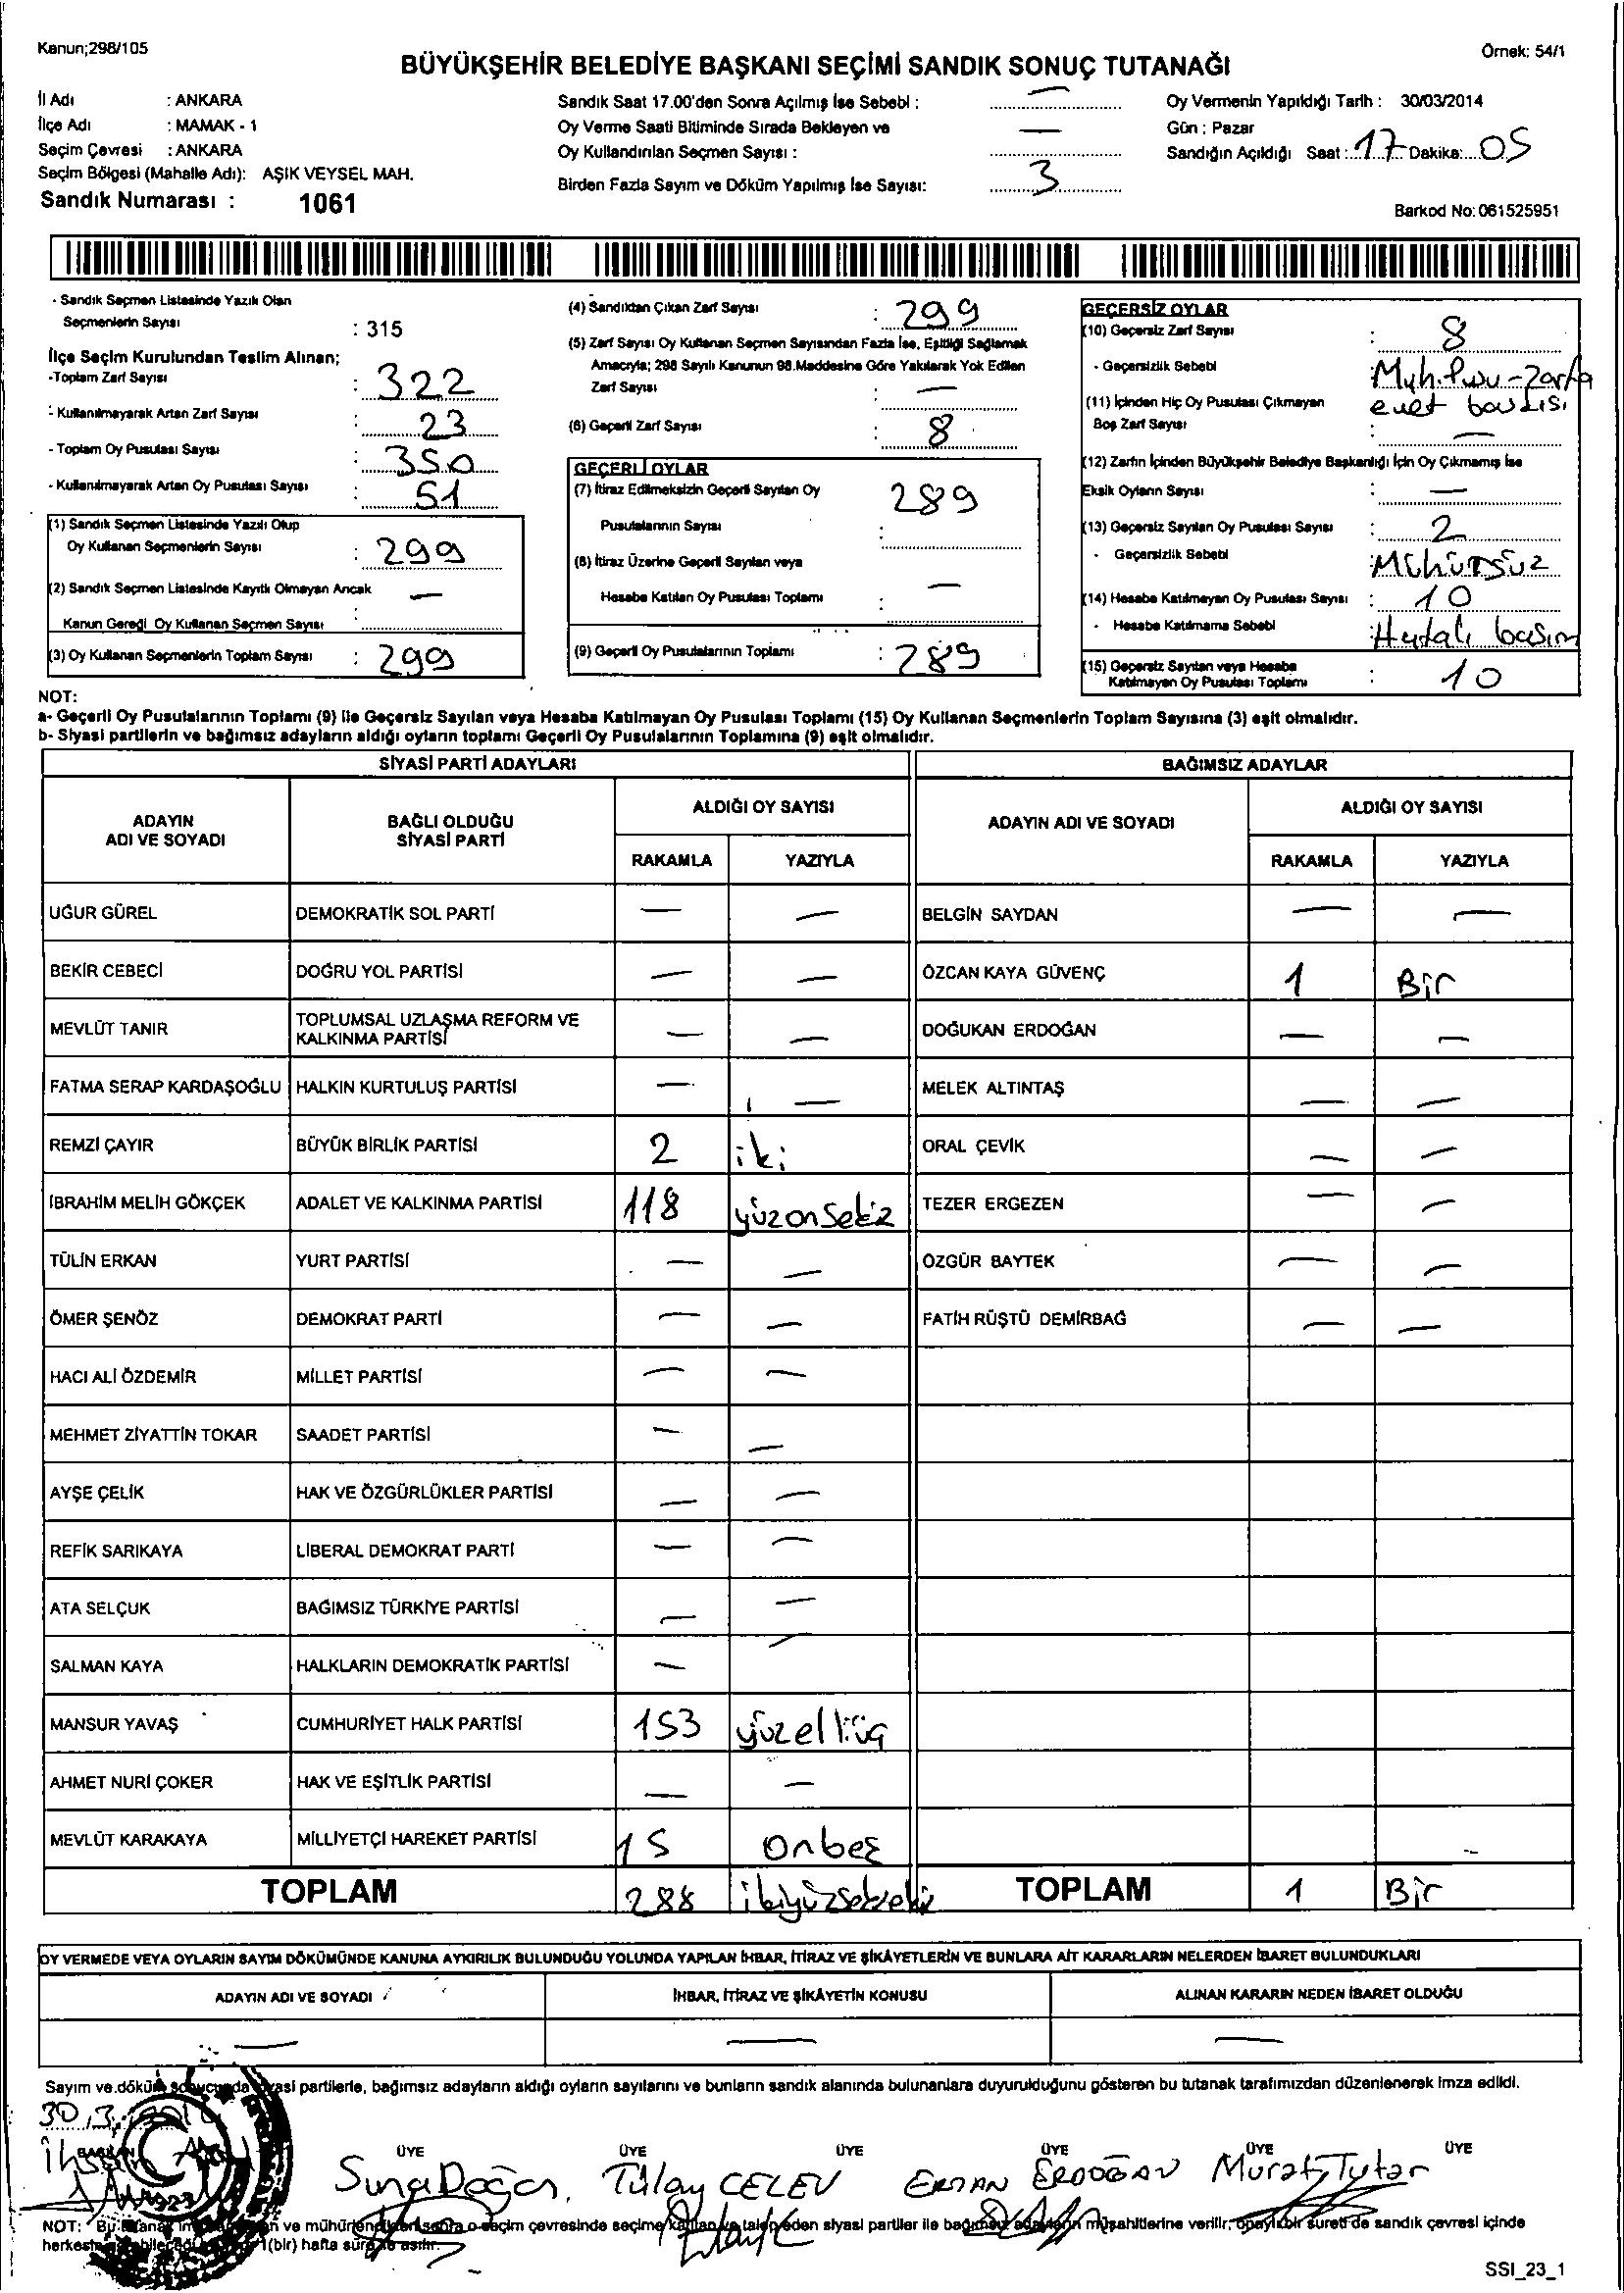 Kanun;298/105
Örnek: 54/1
BÜYÜKŞEHİR BELEDİYE BAŞKANI SEÇİMİ SANDIK SONUÇ TUTANAĞI
İl Adı : ANKARA
İlçe Adı : MAMAK - 1
Seçim Çevresi : ANKARA
Seçim Bölgesi (Mahalle Adı): AŞIK VEYSEL MAH.
Sandık Numarası : 1061
Sandık Saat 17.00'den Sonra Açılmış İse Sebebi : —
Oy Verme Saati Bitiminde Sırada Bekleyen ve
Oy Kullandırılan Seçmen Sayısı : —
Birden Fazla Sayım ve Döküm Yapılmış İse Sayısı: 3
Oy Vermenin Yapıldığı Tarih : 30/03/2014
Gün : Pazar
Sandığın Açıldığı Saat : 17 Dakika: 05
Barkod No: 061525951
- Sandık Seçmen Listesinde Yazılı Olan
Seçmenlerin Sayısı : 315
İlçe Seçim Kurulundan Teslim Alınan;
-Toplam Zarf Sayısı : 322
- Kullanılmayarak Artan Zarf Sayısı : 23
- Toplam Oy Pusulası Sayısı : 350
- Kullanılmayarak Artan Oy Pusulası Sayısı : 51
(1) Sandık Seçmen Listesinde Yazılı Olup
Oy Kullanan Seçmenlerin Sayısı : 299
(2) Sandık Seçmen Listesinde Kayıtlı Olmayan Ancak
Kanun Gereği Oy Kullanan Seçmen Sayısı : —
(3) Oy Kullanan Seçmenlerin Toplam Sayısı : 299
(4) Sandıktan Çıkan Zarf Sayısı : 299
(5) Zarf Sayısı Oy Kullanan Seçmen Sayısından Fazla İse, Eşitliği Sağlamak
Amacıyla; 298 Sayılı Kanunun 98.Maddesine Göre Yakılarak Yok Edilen
Zarf Sayısı : —
(6) Geçerli Zarf Sayısı : 8
GEÇERLİ OYLAR
(7) İtiraz Edilmeksizin Geçerli Sayılan Oy
Pusulalarının Sayısı : 289
(8) İtiraz Üzerine Geçerli Sayılan veya
Hesaba Katılan Oy Pusulası Toplamı : —
(9) Geçerli Oy Pusulalarının Toplamı : 289
GEÇERSİZ OYLAR
(10) Geçersiz Zarf Sayısı : 8
- Geçersizlik Sebebi : Zarfa
evet
(11) İçinden Hiç Oy Pusulası Çıkmayan
Boş Zarf Sayısı : —
(12) Zarfın İçinden Büyükşehir Belediye Başkanlığı İçin Oy Çıkmamış İse
Eksik Oyların Sayısı : —
(13) Geçersiz Sayılan Oy Pusulası Sayısı : 2
- Geçersizlik Sebebi : Mühürsüz
(14) Hesaba Katılmayan Oy Pusulası Sayısı : 10
- Hesaba Katılmama Sebebi : Hatalı basım
(15) Geçersiz Sayılan veya Hesaba
Katılmayan Oy Pusulası Toplamı : 10
NOT:
a- Geçerli Oy Pusulalarının Toplamı (9) ile Geçersiz Sayılan veya Hesaba Katılmayan Oy Pusulası Toplamı (15) Oy Kullanan Seçmenlerin Toplam Sayısına (3) eşit olmalıdır.
b- Siyasi partilerin ve bağımsız adayların aldığı oyların toplamı Geçerli Oy Pusulalarının Toplamına (9) eşit olmalıdır.
SİYASİ PARTİ ADAYLARI
ADAYIN ADI VE SOYADI
BAĞLI OLDUĞU SİYASİ PARTİ
ALDIĞI OY SAYISI
RAKAMLA YAZIYLA
UĞUR GÜREL DEMOKRATİK SOL PARTİ — —
BEKİR CEBECİ DOĞRU YOL PARTİSİ — —
MEVLÜT TANIR TOPLUMSAL UZLAŞMA REFORM VE KALKINMA PARTİSİ — —
FATMA SERAP KARDAŞOĞLU HALKIN KURTULUŞ PARTİSİ — —
REMZİ ÇAYIR BÜYÜK BİRLİK PARTİSİ 2 iki
İBRAHİM MELİH GÖKÇEK ADALET VE KALKINMA PARTİSİ 118 yüzonsekiz
TÜLİN ERKAN YURT PARTİSİ — —
ÖMER ŞENÖZ DEMOKRAT PARTİ — —
HACI ALİ ÖZDEMİR MİLLET PARTİSİ — —
MEHMET ZİYATTİN TOKAR SAADET PARTİSİ — —
AYŞE ÇELİK HAK VE ÖZGÜRLÜKLER PARTİSİ — —
REFİK SARIKAYA LİBERAL DEMOKRAT PARTİ — —
ATA SELÇUK BAĞIMSIZ TÜRKİYE PARTİSİ — —
SALMAN KAYA HALKLARIN DEMOKRATİK PARTİSİ — —
MANSUR YAVAŞ CUMHURİYET HALK PARTİSİ 153 yüzelliüç
AHMET NURİ ÇOKER HAK VE EŞİTLİK PARTİSİ — —
MEVLÜT KARAKAYA MİLLİYETÇİ HAREKET PARTİSİ 15 onbeş
TOPLAM 288
BAĞIMSIZ ADAYLAR
ADAYIN ADI VE SOYADI
ALDIĞI OY SAYISI
RAKAMLA YAZIYLA
BELGİN SAYDAN — —
ÖZCAN KAYA GÜVENÇ 1 Bir
DOĞUKAN ERDOĞAN — —
MELEK ALTINTAŞ — —
ORAL ÇEVİK — —
TEZER ERGEZEN — —
ÖZGÜR BAYTEK — —
FATİH RÜŞTÜ DEMİRBAĞ — —
TOPLAM 1 Bir
OY VERMEDE VEYA OYLARIN SAYIM DÖKÜMÜNDE KANUNA AYKIRILIK BULUNDUĞU YOLUNDA YAPILAN İHBAR, İTİRAZ VE ŞİKÂYETLERİN VE BUNLARA AİT KARARLARIN NELERDEN İBARET BULUNDUKLARI
ADAYIN ADI VE SOYADI İHBAR, İTİRAZ VE ŞİKÂYETİN KONUSU ALINAN KARARIN NEDEN İBARET OLDUĞU
— — —
Sayım ve döküm sonucunda siyasi partilerle, bağımsız adayların aldığı oyların sayılarını ve bunların sandık alanında bulunanlara duyurulduğunu gösteren bu tutanak tarafımızdan düzenlenerek imza edildi.
30.3.
BAŞKAN ÜYE ÜYE ÜYE ÜYE ÜYE ÜYE
İhsan Suna Doğan. Tülay ERDOĞAN Murat Tutar
NOT: Bu tutanak ve mühürlendikten sonra o seçim çevresinde seçime katılan ve talep eden siyasi partiler ile bağımsız adayların müşahitlerine verilir, onaylı bir sureti de sandık çevresi içinde
1(bir) hafta süre ile asılır.
SSI_23_1